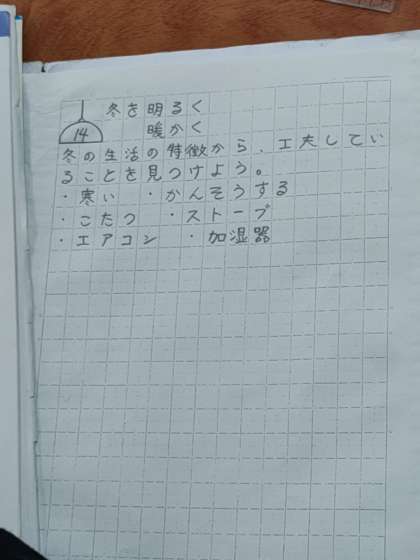 冬を明るく
14
暖かく
冬の生活の特徴から、工夫してい
ることを見つけよう。
・寒い ・かんそうする
・こたつ ・ストーブ
・エアコン ・加湿器